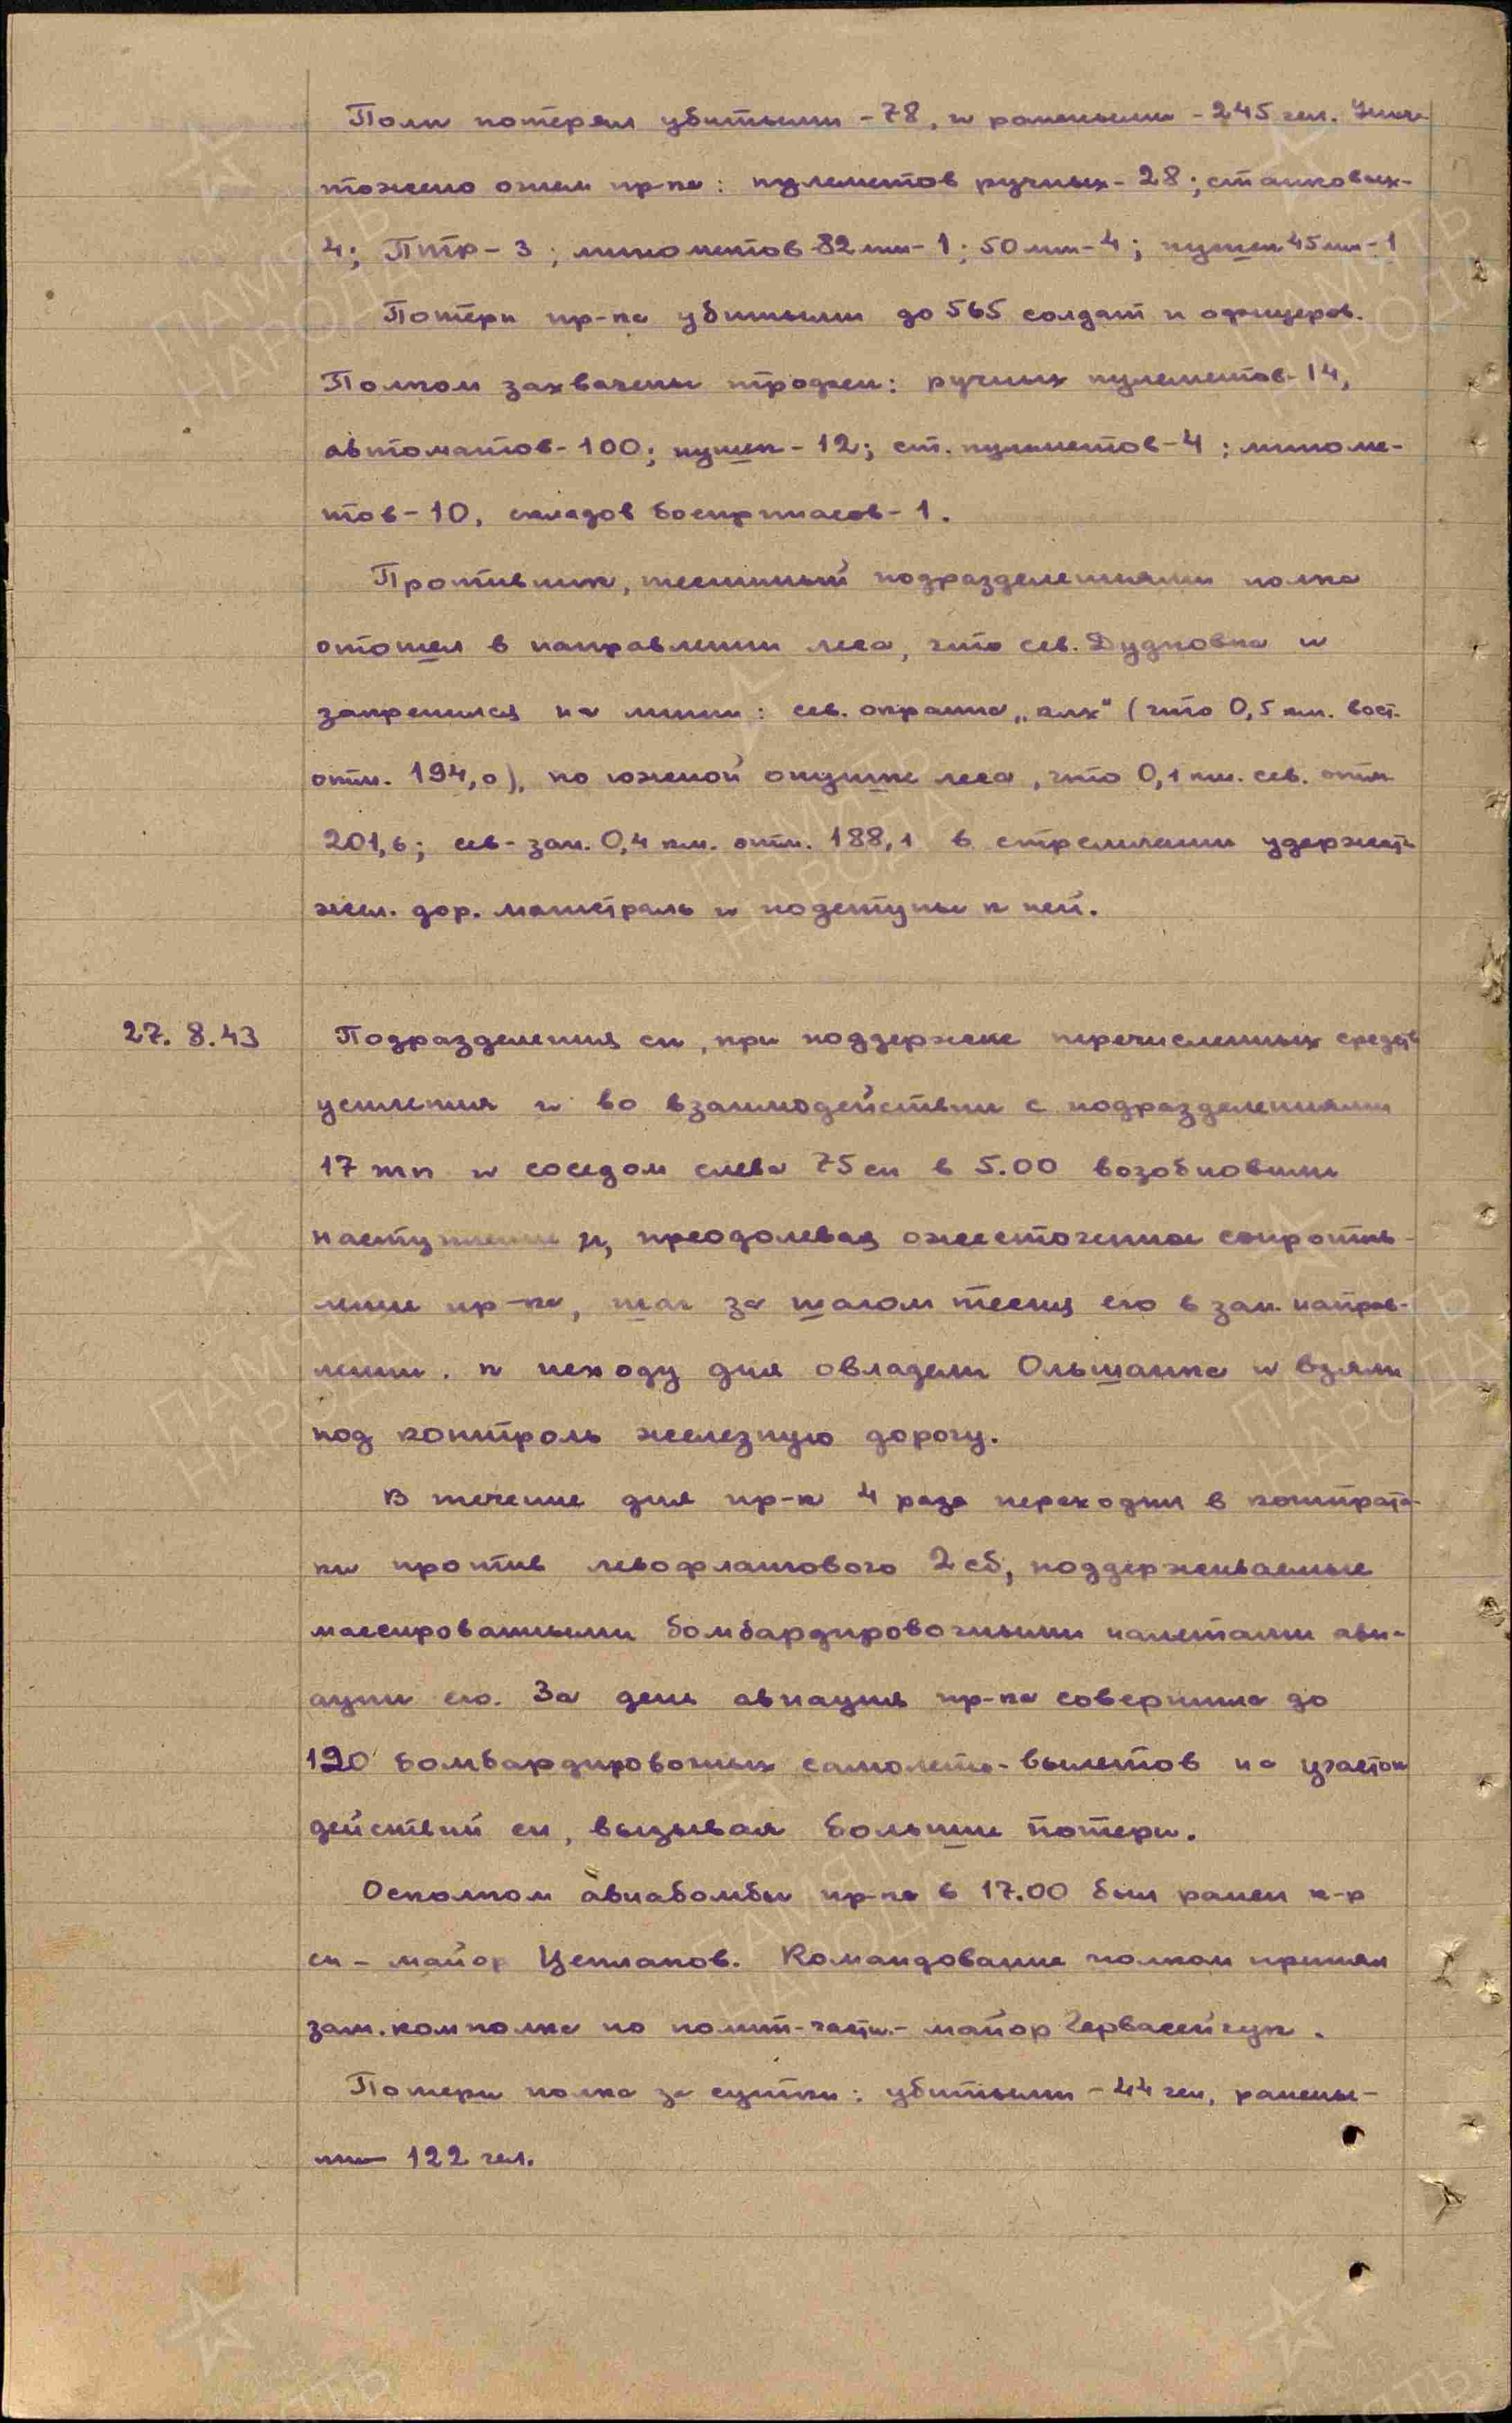 Полк потерял убитыми - 78, и ранеными - 245 чел. Унич-
тожено огнем пр-ка: пулеметов ручных - 28; станковых -
4; ПТР - 3; минометов 82 мм - 1; 50 мм - 4; пушек 45 мм - 1
Потери пр-ка убитыми до 565 солдат и офицеров.
Полком захвачены трофеи: ручных пулеметов - 14,
автоматов - 100; пушек - 12; ст. пулеметов - 4; миноме-
тов - 10, складов боеприпасов - 1.
Противник, теснимый подразделениями полка
отошел в направлении леса, что сев. Дудковка и
закрепился на линии: сев. окраина „клх" (что 0,5 км. вост.
отм. 194,0), по южной опушке леса, что 0,1 км. сев. отм.
201,6; сев-зап. 0,4 км. отм. 188,1 в стремлении удержать
жел. дор. магистраль и подступы к ней.
27. 8. 43
Подразделения сп, при поддержке перечисленных средств
усиления и во взаимодействии с подразделениями
17 тп и соседом слева 75 сп в 5.00 возобновили
наступление и, преодолевая ожесточенное сопротив-
ление пр-ка, шаг за шагом тесня его в зап. направ-
лении. к исходу дня овладели Ольшанка и взяли
под контроль железную дорогу.
В течение дня пр-к 4 раза переходил в контрата-
ки против левофлангового 2 сб, поддерживаемые
массированными бомбардировочными налетами ави-
ации его. За день авиация пр-ка совершила до
120 бомбардировочных самолето-вылетов на участок
действий сп, вызывая большие потери.
Осколком авиабомбы пр-ка в 17.00 был ранен к-р
сп - майор Цеплаков. Командование полком принял
зам. ком полка по полит-части - майор Гервасейчук.
Потери полка за сутки: убитыми - 44 чел, ранены-
ми - 122 чел.
ПАМЯТЬ
НАРОДА
ПАМЯТЬ
НАРОДА
ПАМЯТЬ
НАРОДА
ПАМЯТЬ
НАРОДА
ПАМЯТЬ
НАРОДА
ПАМЯТЬ
НАРОДА